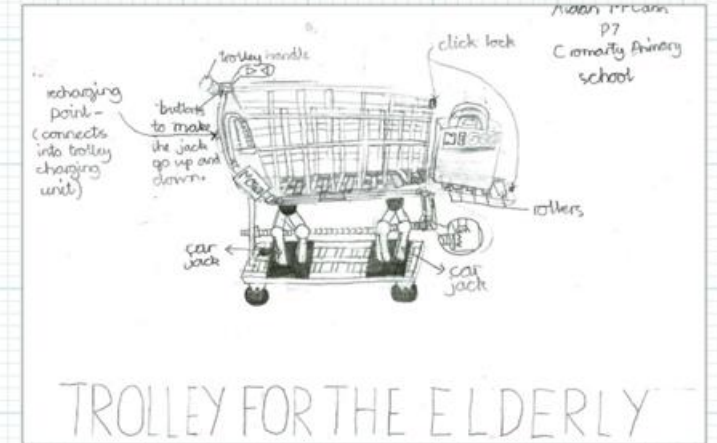 Aidan McCann
P7
Cromarty Primary
school
trolley handle
click lock
recharging
point-
(connects
into trolley
charging
unit)
buttons
to make
the jack
go up and
down.
rollers
car
jack
car
jack
TROLLEY FOR THE ELDERLY